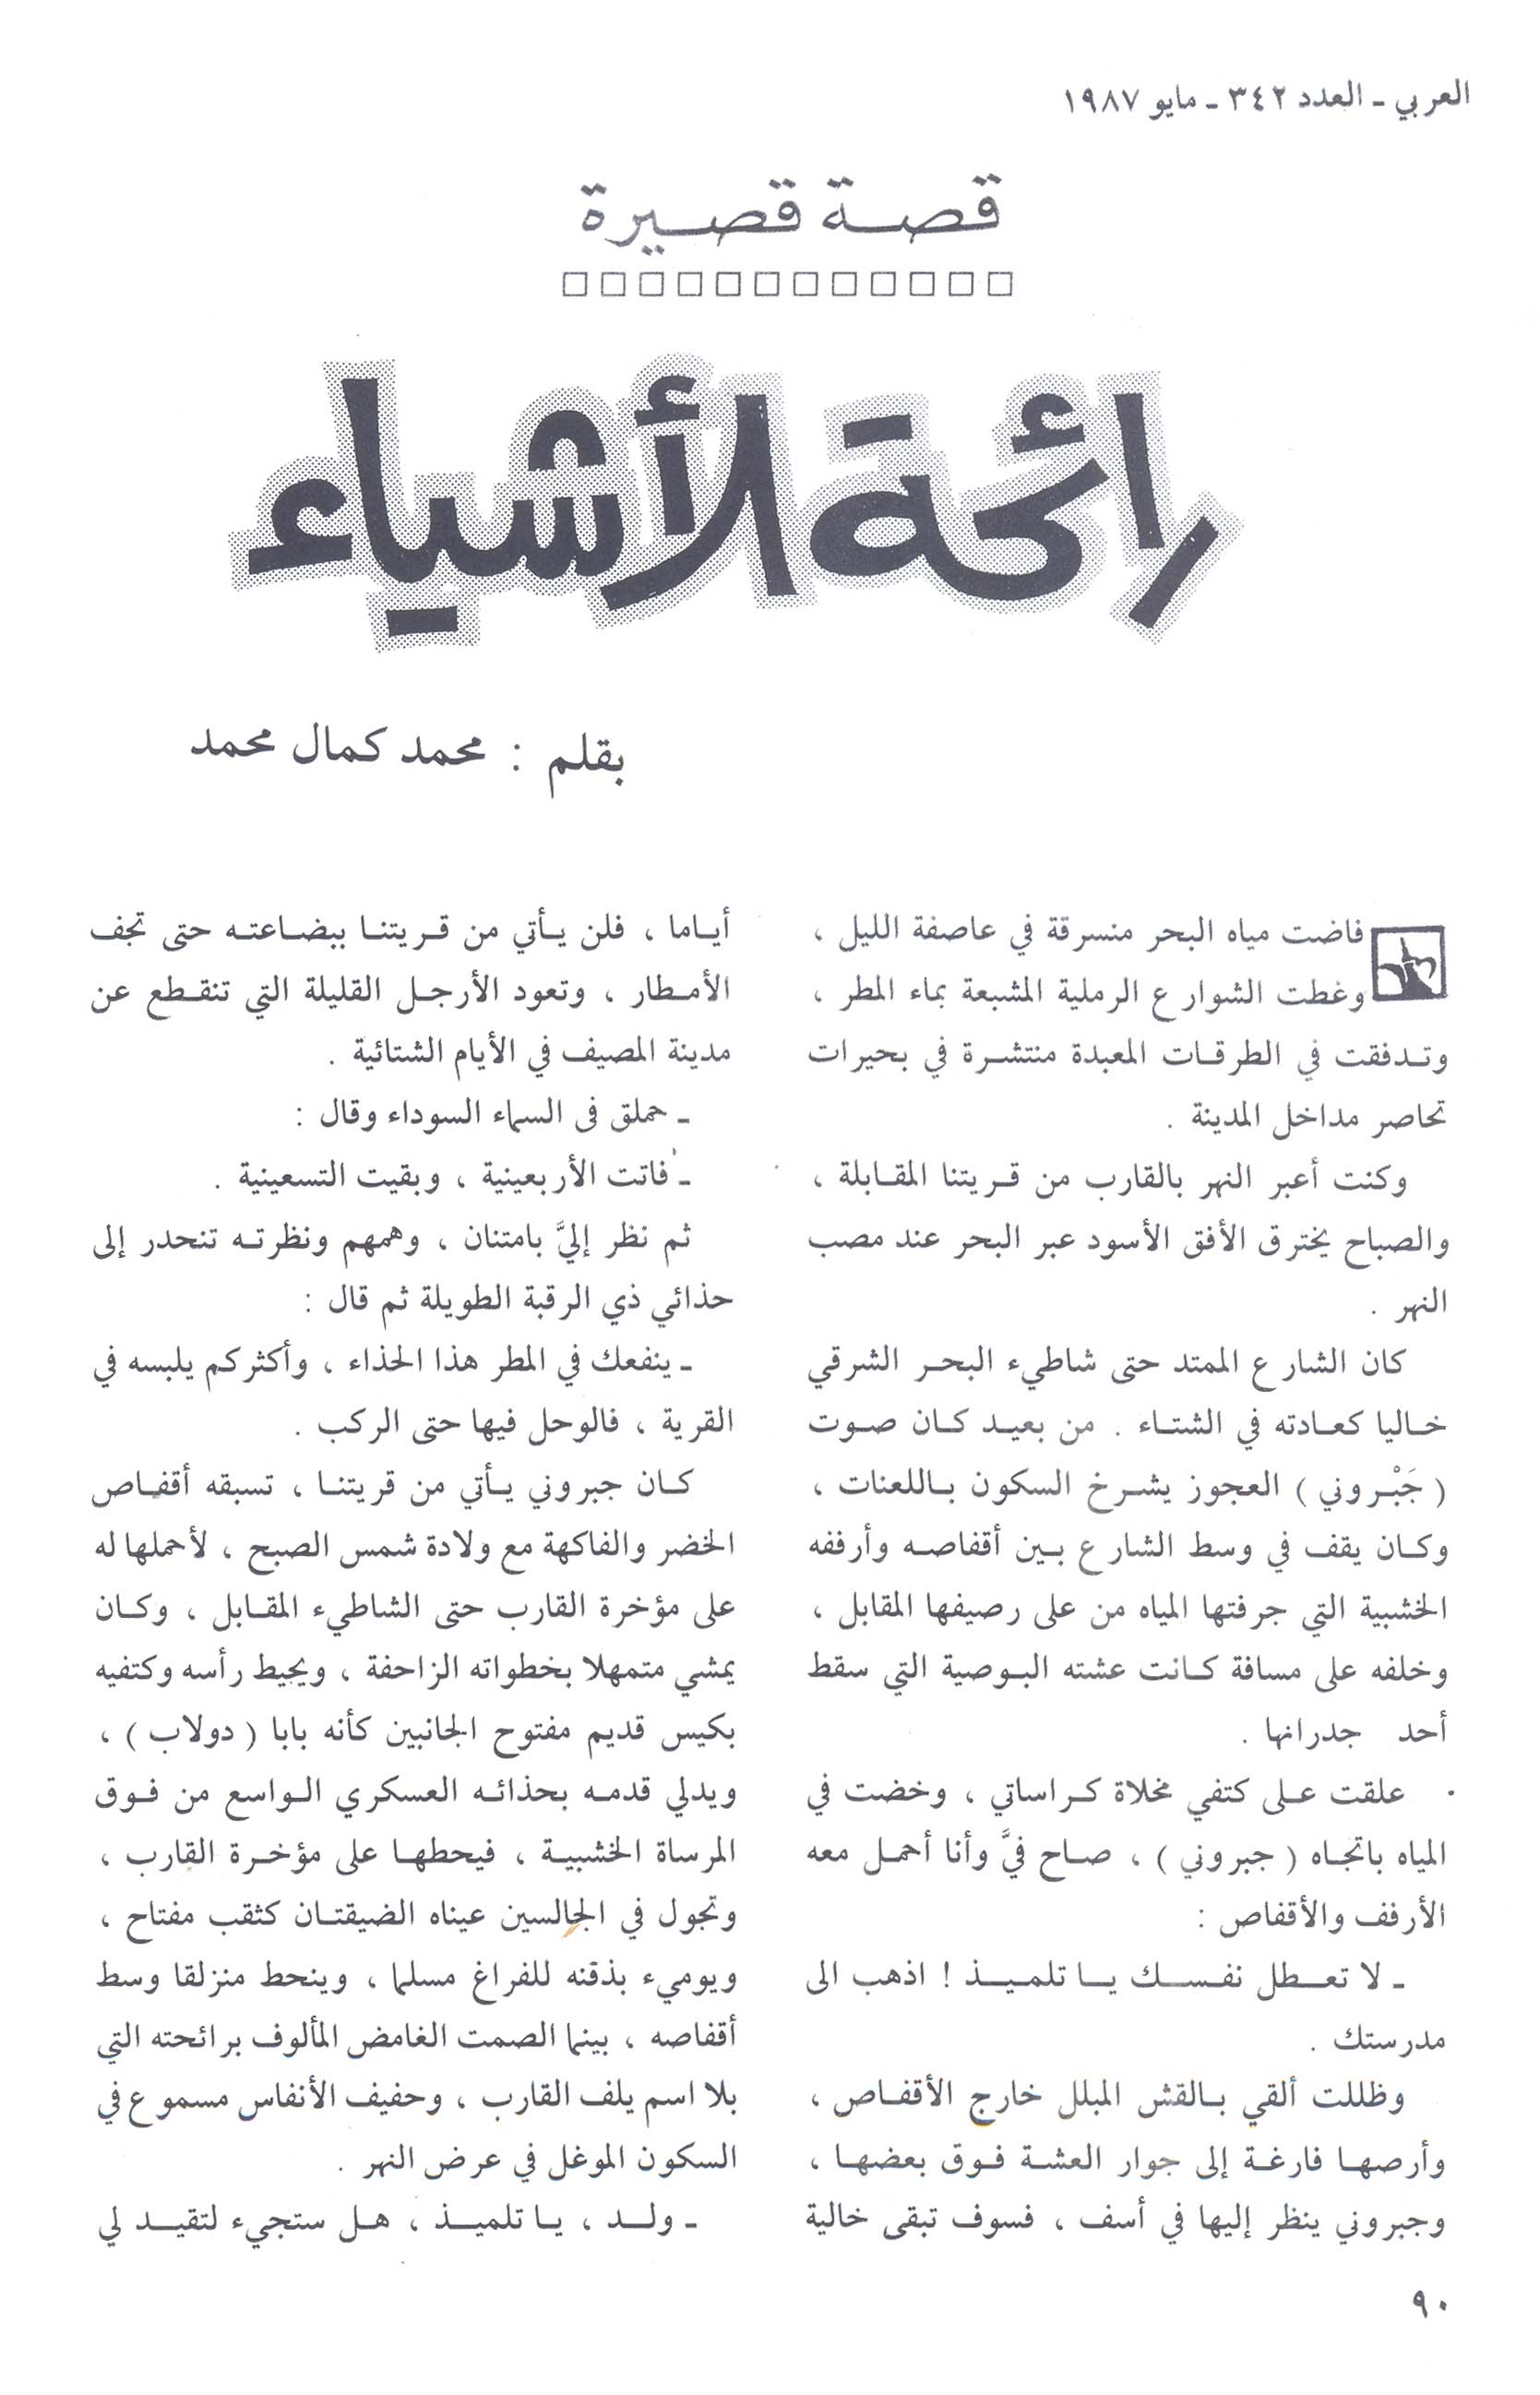 العربي - العدد ٣٤٢ - مايو ١٩٨٧
قصة قصيرة
رائحة الأشياء
بقلم : محمد كمال محمد
فاضت مياه البحر منسرقة في عاصفة الليل ،
وغطت الشوارع الرملية المشبعة بماء المطر ،
وتدفقت في الطرقات المعبدة منتشرة في بحيرات
تحاصر مداخل المدينة .
وكنت أعبر النهر بالقارب من قريتنا المقابلة ،
والصباح يخترق الأفق الأسود عبر البحر عند مصب
النهر .
كان الشارع الممتد حتى شاطيء البحر الشرقي
خاليا كعادته في الشتاء . من بعيد كان صوت
( جَبْروني ) العجوز يشرخ السكون باللعنات ،
وكان يقف في وسط الشارع بين أقفاصه وأرففه
الخشبية التي جرفتها المياه من على رصيفها المقابل ،
وخلفه على مسافة كانت عشته البوصية التي سقط
أحد جدرانها .
علقت على كتفي مخلاة كراساتي ، وخضت في
المياه باتجاه ( جبروني ) ، صاح فيَّ وأنا أحمل معه
الأرفف والأقفاص :
- لا تعطل نفسك يا تلميذ ! اذهب الى
مدرستك .
وظللت ألقي بالقش المبلل خارج الأقفاص ،
وأرصها فارغة إلى جوار العشة فوق بعضها ،
وجبروني ينظر إليها في أسف ، فسوف تبقى خالية
أياما ، فلن يأتي من قريتنا ببضاعته حتى تجف
الأمطار ، وتعود الأرجل القليلة التي تنقطع عن
مدينة المصيف في الأيام الشتائية .
- حملق فى السماء السوداء وقال :
- فاتت الأربعينية ، وبقيت التسعينية .
ثم نظر إليَّ بامتنان ، وهمهم ونظرته تنحدر إلى
حذائي ذي الرقبة الطويلة ثم قال :
- ينفعك في المطر هذا الحذاء ، وأكثركم يلبسه في
القرية ، فالوحل فيها حتى الركب .
كان جبروني يأتي من قريتنا ، تسبقه أقفاص
الخضر والفاكهة مع ولادة شمس الصبح ، لأحملها له
على مؤخرة القارب حتى الشاطيء المقابل ، وكان
يمشي متمهلا بخطواته الزاحفة ، ويحيط رأسه وكتفيه
بكيس قديم مفتوح الجانبين كأنه بابا ( دولاب ) ،
ويدلي قدمه بحذائه العسكري الواسع من فوق
المرساة الخشبية ، فيحطها على مؤخرة القارب ،
وتجول في الجالسين عيناه الضيقتان كثقب مفتاح ،
ويوميء بذقنه للفراغ مسلما ، وينحط منزلقا وسط
أقفاصه ، بينما الصمت الغامض المألوف برائحته التي
بلا اسم يلف القارب ، وحفيف الأنفاس مسموع في
السكون الموغل في عرض النهر .
- ولد ، يا تلميذ ، هل ستجيء لتقيد لي
٩٠